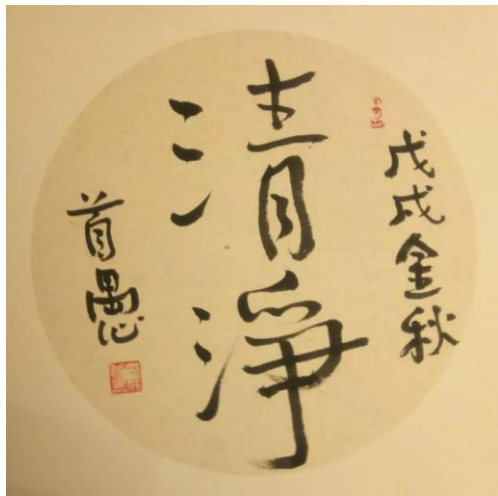 戊戌金秋
清淨
首愚